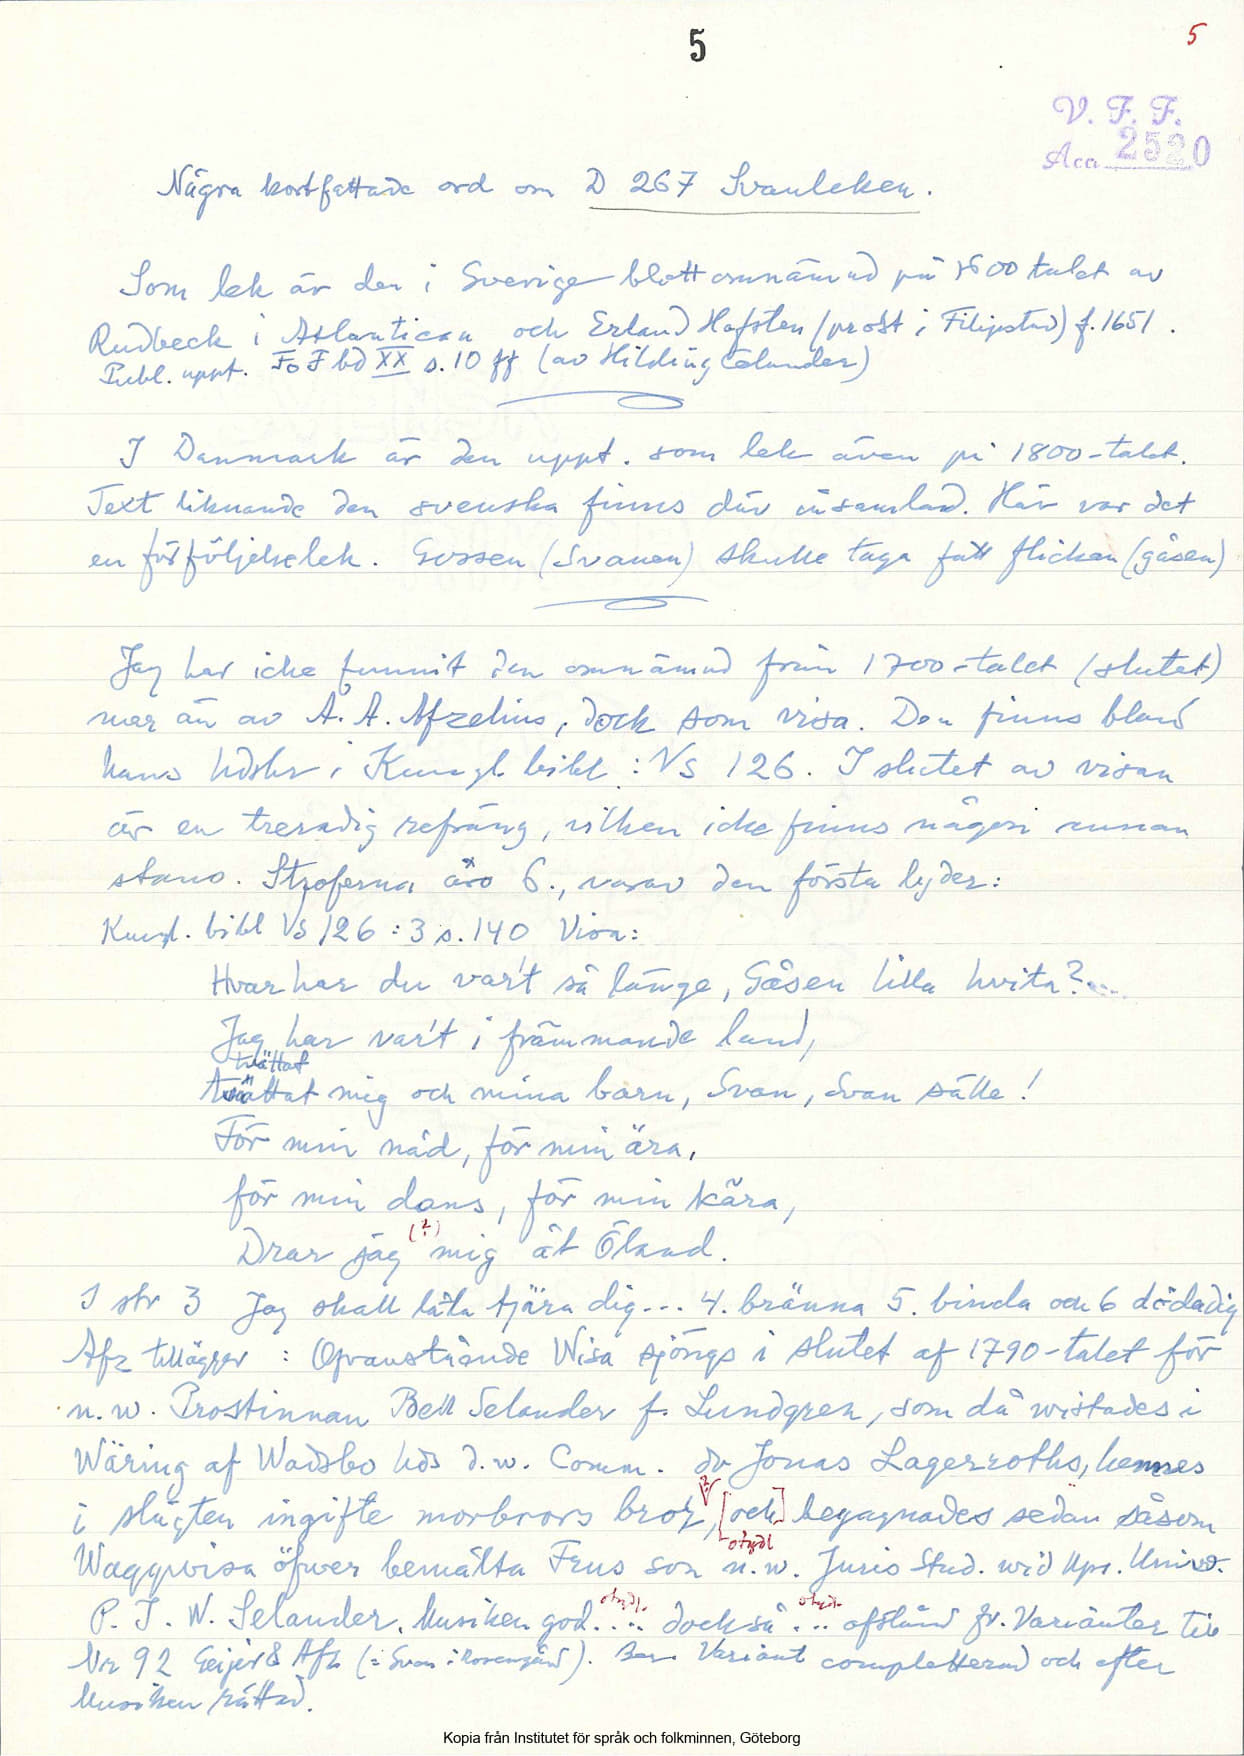 5
5
V. F. F.
Acc 2520
Några kortfattade ord om D 267 Svanleken.
Som lek är den i Sverige blott omnämnd på 1600 talet av
Rudbeck i Atlantican och Erland Hofsten (prost i Filipstad) f. 1651.
Publ. uppt. FoF bd XX s. 10 ff (av Hilding Celander)
I Danmark är den uppt. som lek även på 1800-talet.
Text liknande den svenska finns där insamlad. Här var det
en förföljelselek. Gossen (Svanen) skulle taga fatt flickan (gåsen)
Jag har icke funnit den omnämnd från 1700-talet (slutet)
mer än av A. A. Afzelius, dock som visa. Den finns bland
hans hdskr i Kungl. bibl : VS 126. I slutet av visan
är en treradig refräng, vilken icke finns någon annan
stans. Stroferna äro 6., varav den första lyder:
Kungl. bibl VS 126 : 3 s. 140 Visa:
Hvar har du var't så länge, Gåsen lilla hvita?
Jag har var't i främmande land,
tvättat
tvättat mig och mina barn, Svan, Svan sälle!
För min nåd, för min ära,
för min dans, för min kära,
(?)
Drar jag mig åt Öland.
I str 3 Jag skall låta tjära dig... 4. bränna 5. binda och 6 döda dig
Afz tillägger : Ofvanstående Wisa sjöngs i slutet af 1790-talet för
n. w. Prostinnan Selander f. Lundgren, som då wistades i
Wäring af Wadsbo hds d. w. Comm. dr Jonas Lagerroths, hennes
i slägten ingifte morbrors bror, [och] begagnades sedan såsom
otydl
Waggvisa öfwer bemälta Frus son n. w. Juris Stud. wid Ups. Univ.
otydl. otydl.
P. J. W. Selander. Musiken god.... dock så ... afstånd fr. Varianter till
Nr 92 Geijer & Afz (= Svan i Rosengård). Variant completterad och efter
Musiken rättad.
Kopia från Institutet för språk och folkminnen, Göteborg